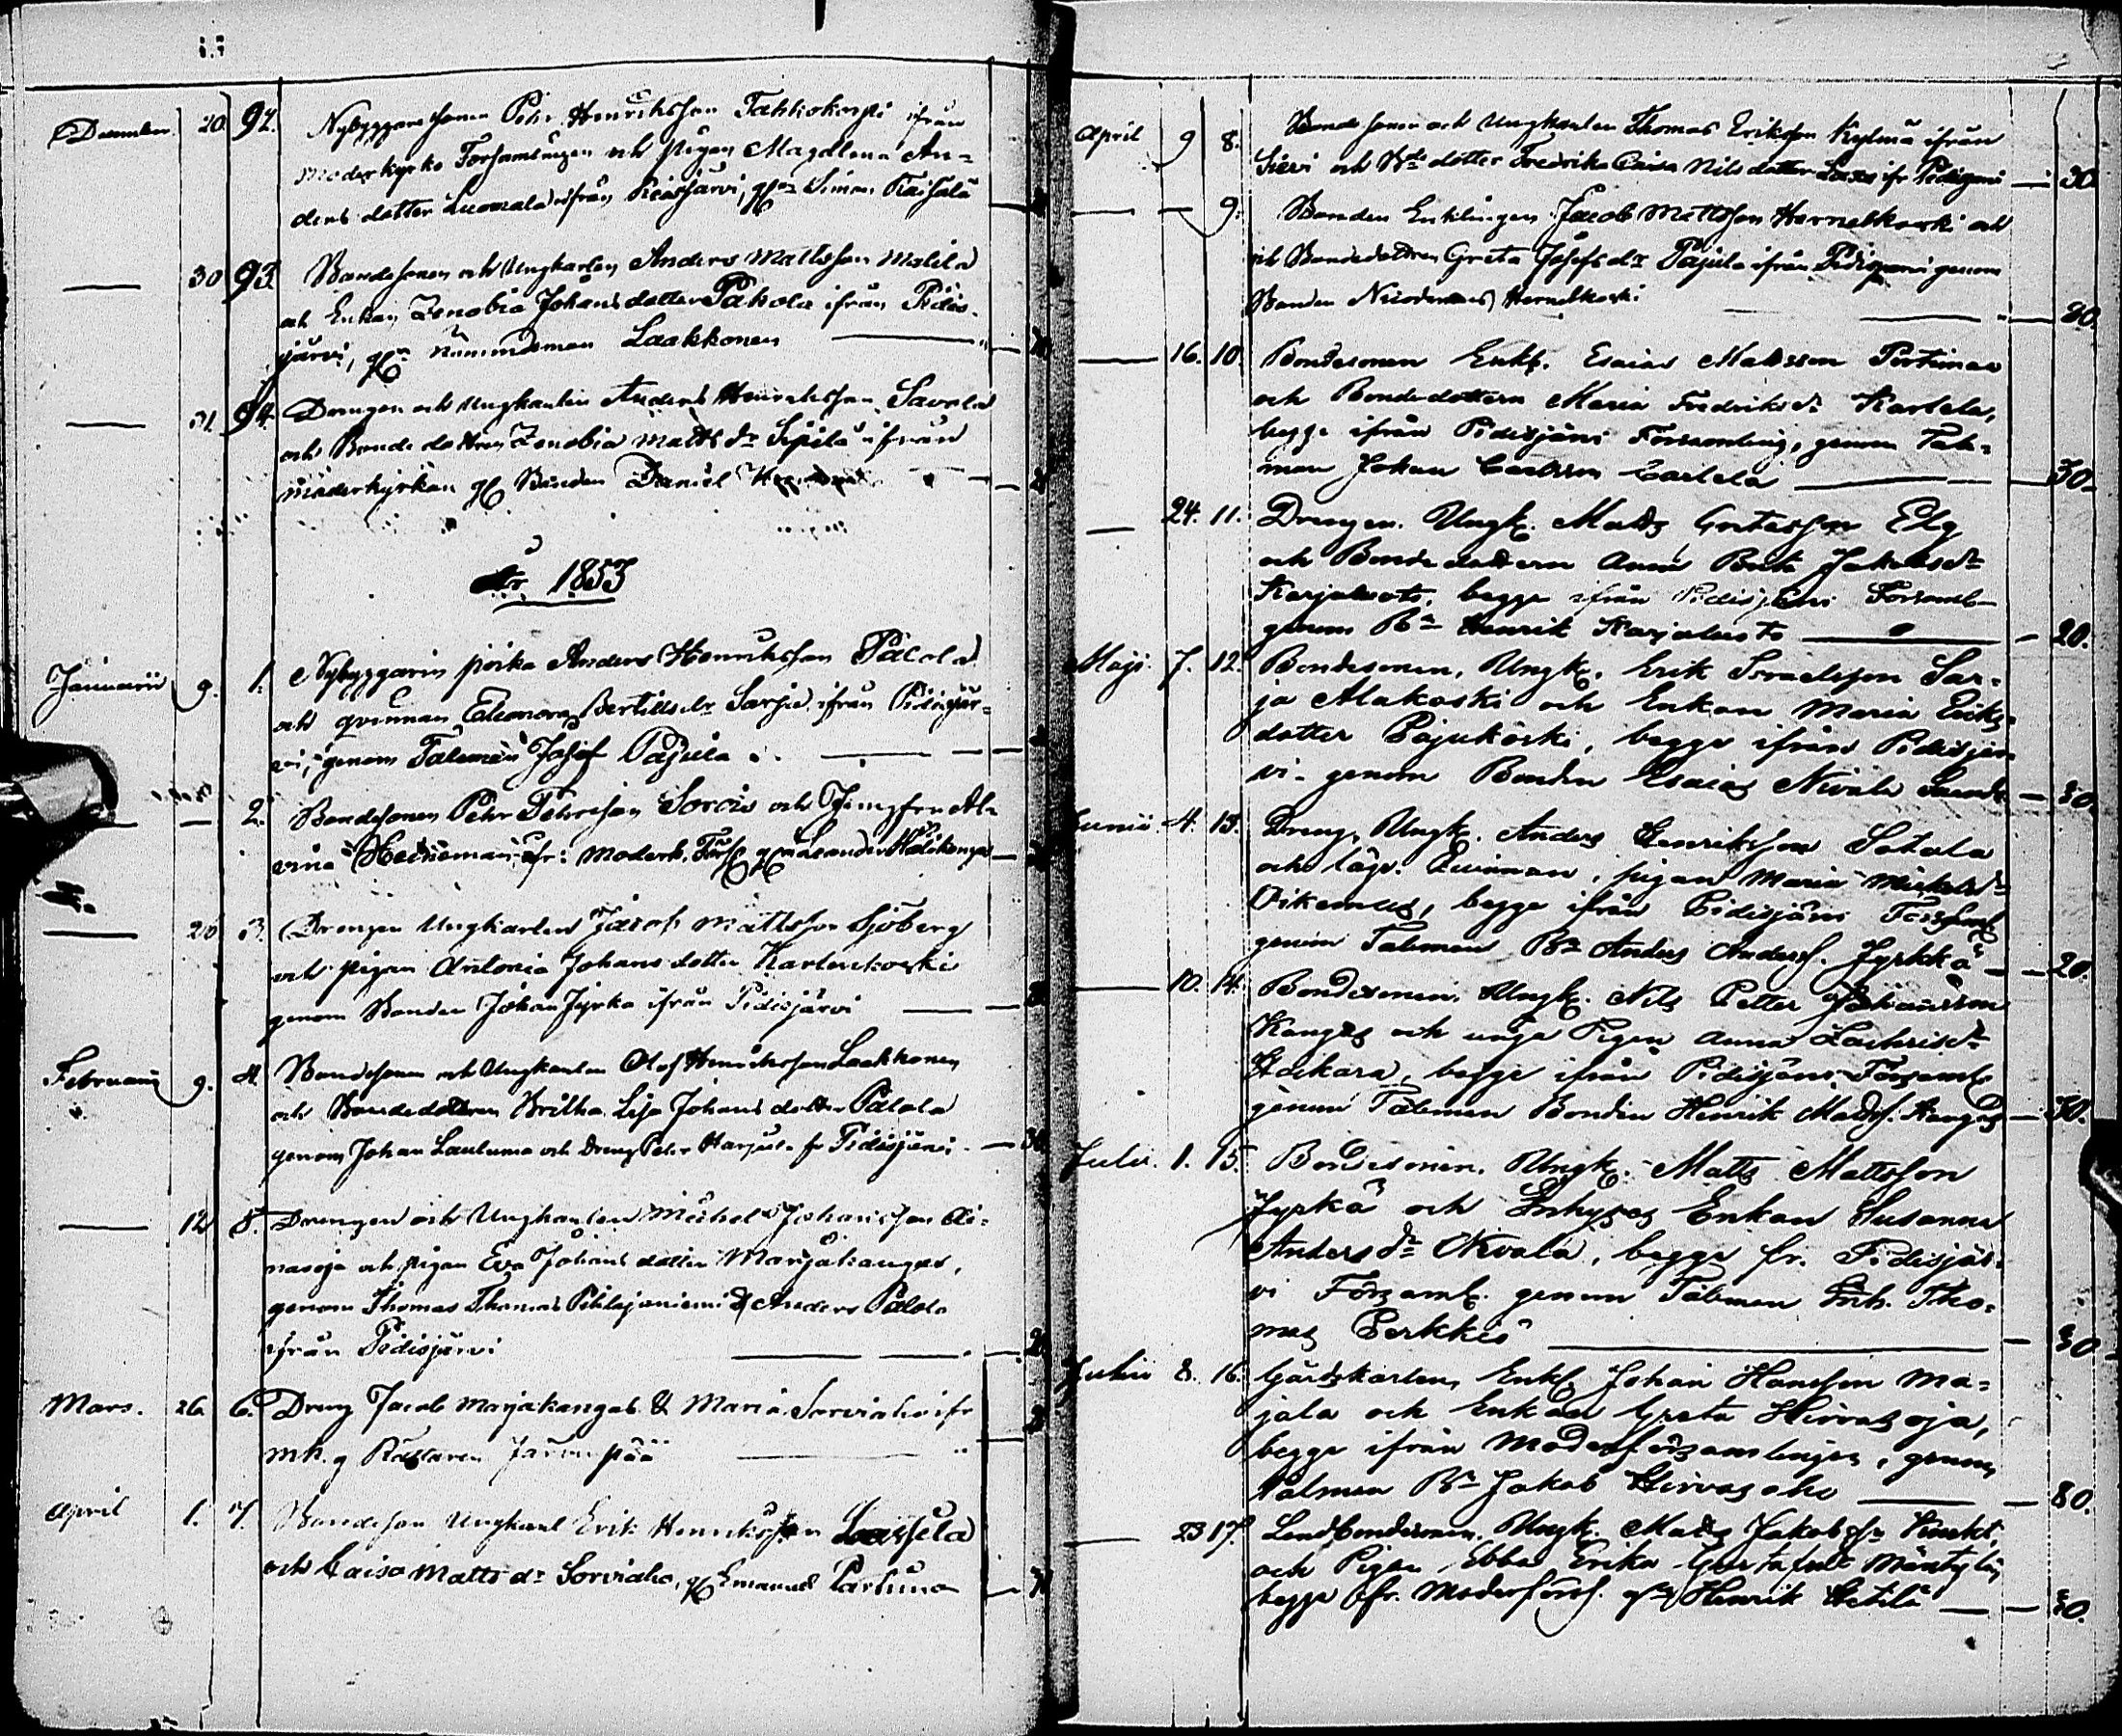 December. 20. 92. Nybyggaresonen Pehr Henriksson Tahkokorpi ifrån
moderkyrko Församlingen och pigan Magdlena An-
ders dotter Luomala ifrån Reisjärvi, gm Simon Kaisala
30 93. Bondesonen och Ungkarlen Anders Mattsson Malila
och Enkan Zenobia Johans dotter Pakola ifrån Pidis-
järvi, gm nämndeman Laakkonen
31 94. Drengen och Ungkarlen Anders Henriksson Savola
och Bonde dottren Zenobia Matts dr Sipilä ifrån
moderkyrkan gm Bonden Daniel
År 1853
Januarii 9. 1. Nybyggarin poika Anders Henriksson Palola
och qvinnan Eleonora Bertills dr Sarja ifrån Pidisjär-
vi, genom Taleman Josef Pajula
2. Bondesonen Pehr Pehrsson Sorvis och Jungfru Al-
vina Heineman ifr: Moderk. Förs
26 3. Drengen Ungkarlen Jacob Mattsson Sjöberg
och pigan Antonia Johans dotter Karlukoski
genom Bonden Johan Jyrka ifrån Pidisjärvi
Februarii 9. 4. Bondesonen och Ungkarlen Olof Henriksson Laakkonen
och Bondedottren Britha Lisa Johans dotter Palola
genom Johan Lauluma och Dreng Pehr Harjula fr Pidisjärvi - 30
12 5. Drengen och Ungkarlen Michel Johansson Ai-
nasoja och pigan Eva Johans dotter Marjakangas,
genom Thomas Thomas Pihlajaniemi & Anders Palola
ifrån Pidisjärvi
Mars. 26. 6. Dreng Jacob Marjakangas & Maria Sorviaho ifr
mk. g Rättaren Järvenpää
April 1. 7. Bondeson Ungkarl Erik Henriksson Lassila
och Caisa Matts dr Sorviaho, gm Emanuel Partuna
April 9 8. Bonde sonen och Ungkarlen Thomas Eriksson Kylmä ifrån
Sievi och Bde dotter Fredrika Caisa Nils dotter ifr Pidisjärvi — 30
9. Bonden Enklingen Jacob Mattsson Hernetkoski och
och Bondedottren Greta Josefs dr Pajula ifrån Pidisjärvi genom
Bonden Nicodemus Hernetkoski 80.
16. 10. Bondesonen Enkl. Esaias Mattsson Portimaa
och Bondedottern Maria Fredriks dr Karlela,
begge ifrån Pidisjärvi Församling, genom Tale-
man Johan Carlsson Carlela — 30.
24. 11. Drengen. Ungk. Matts Gustafsson Elg
och Bonde dottern Anna Brita Jakobs dr
Karjaluoto, begge ifrån Pidisjärvi Församl-
genom Bn Henrik Karjaluoto — 20.
Maji. 7. 12. Bondesonen, Ungk. Erik Israelsson Sar-
ja Alakoski och Enkan Maria Eriks-
dotter Pajukoski, begge ifrån Pidisjär-
vi - genom Bonden Esaias Nivala — 30.
Junii. 4. 13. Dreng. Ungk. Anders Henriksson Sotala
och läg. Quinnan, pigan Maria Mickels dr
Oikemus, begge ifrån Pidisjärvi Församl
genom Taleman Bn Anders Anderss. Jyrkkä — 20.
10. 14. Bondesonen. Ungk. Nils Petter Johansson
Kangas och unga Pigan Anna Zachris dr
begge ifrån Pidisjärvi Församl
genom Taleman Bonden Henrik Matss. Kangas — 30.
Julii. 1. 15. Bondesonen. Ungk. Matts Mattsson
Jyrkä och Inhyses Enkan Susanna
Anders dr Nivala, begge fr. Pidisjär-
vi Församl. genom Taleman Inh. Tho-
mas Perkkiö — 30
Julii 8. 16. Gårdskarlen, Enkl Johan Hansson Ma-
jala och Enkan Greta Hirvasoja,
begge ifrån Moderförsamlingen, genom
talman Bn Jakob Hirvasoho — 80.
23 17. Landbondesonen. Ungk. Matts Jakobsson
och Pigan Ebba Erika Gustafsdr Mäntylä,
begge ifr. Moderförs. gm Henrik — 30.